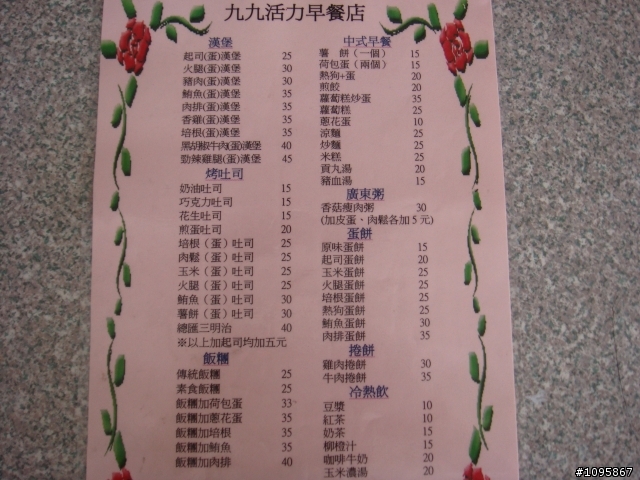 九九活力早餐店
漢堡
起司(蛋)漢堡 25
火腿(蛋)漢堡 30
豬肉(蛋)漢堡 30
鮪魚(蛋)漢堡 35
肉排(蛋)漢堡 35
香雞(蛋)漢堡 35
培根(蛋)漢堡 35
黑胡椒牛肉(蛋)漢堡 40
勁辣雞腿(蛋)漢堡 45
烤吐司
奶油吐司 15
巧克力吐司 15
花生吐司 15
煎蛋吐司 20
培根（蛋）吐司 25
肉鬆（蛋）吐司 25
玉米（蛋）吐司 25
火腿（蛋）吐司 25
鮪魚（蛋）吐司 30
薯餅（蛋）吐司 30
總匯三明治 40
※以上加起司均加五元
飯糰
傳統飯糰 25
素食飯糰 25
飯糰加荷包蛋 33
飯糰加蔥花蛋 35
飯糰加培根 35
飯糰加鮪魚 35
飯糰加肉排 40
中式早餐
薯 餅（一個） 15
荷包蛋（兩個） 15
熱狗+蛋 20
煎餃 20
蘿蔔糕炒蛋 35
蘿蔔糕 25
蔥花蛋 10
涼麵 25
炒麵 25
米糕 25
貢丸湯 20
豬血湯 15
廣東粥
香菇瘦肉粥 30
(加皮蛋、肉鬆各加5元)
蛋餅
原味蛋餅 15
起司蛋餅 20
玉米蛋餅 25
火腿蛋餅 25
培根蛋餅 25
熱狗蛋餅 25
鮪魚蛋餅 30
肉排蛋餅 35
捲餅
雞肉捲餅 30
牛肉捲餅 35
冷熱飲
豆漿 10
紅茶 10
奶茶 15
柳橙汁 15
咖啡牛奶 20
玉米濃湯 20
#1095867